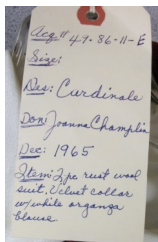 Acq# 49-86-11-E
Size:
Des: Cardinale
Don: Joanna Champlin
Dec: 1965
Item: 2pc rust wool
suit, Velvet collar
w/white organza
blouse